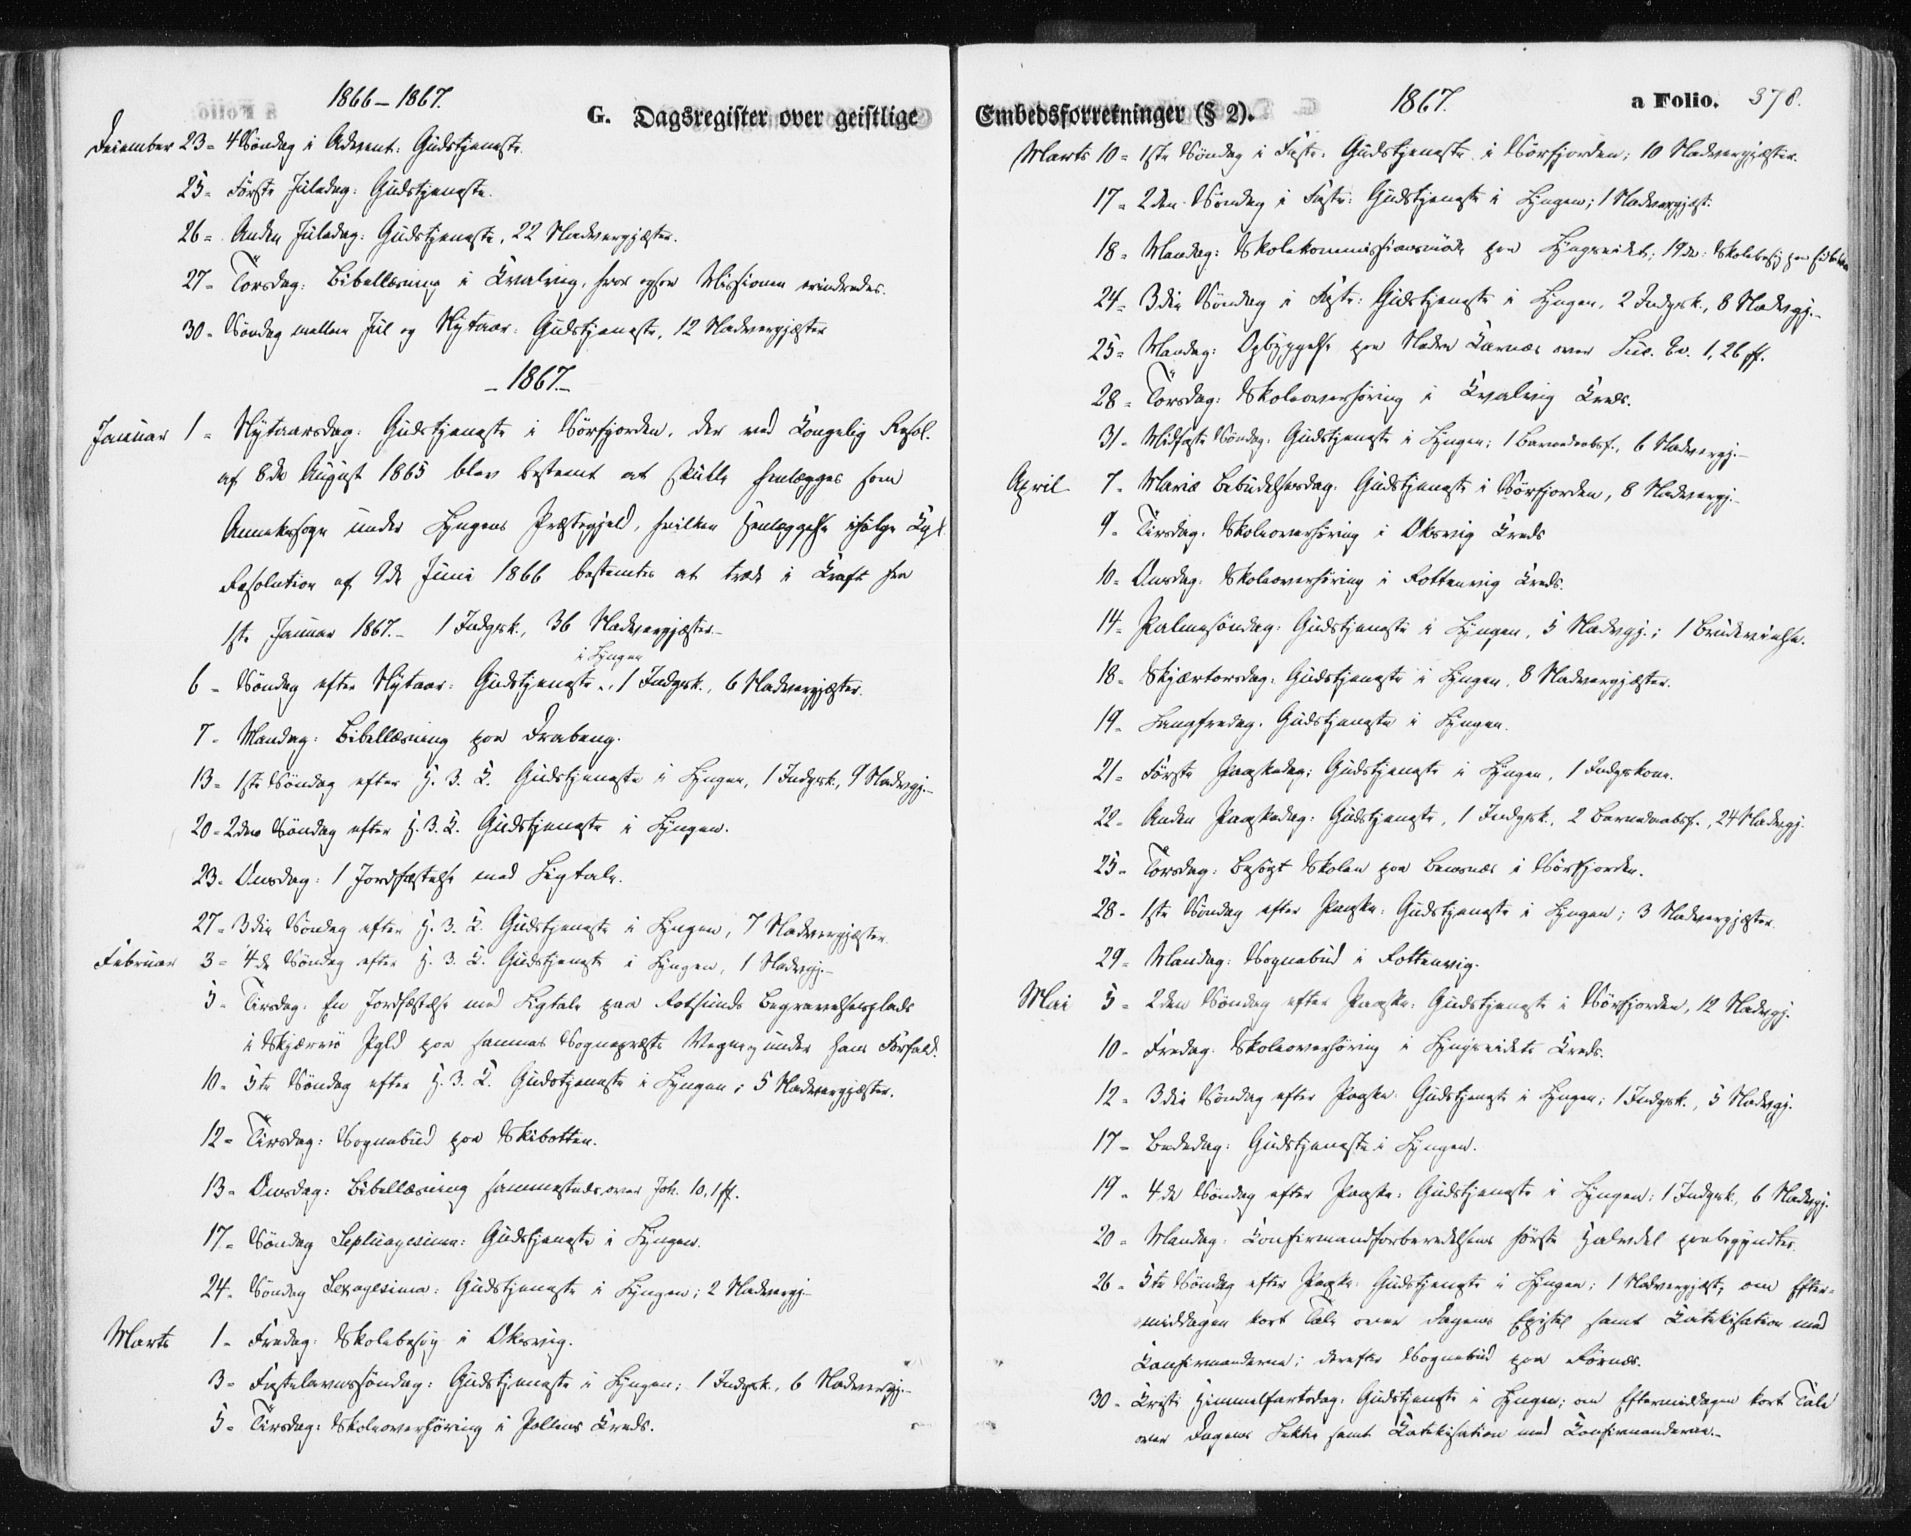 1866 – 1867.
G. Dagsregister over geistlige
December 23 = 4 Søndag i Advent: Gudstjeneste.
25 = Første Juledag: Gudstjeneste.
26 = Anden Juledag: Gudstjeneste, 22 Nadvergjæster.
27 = Torsdag: Bibellæsning i Kvalvig, hvor ogsaa Missionen erindredes.
30 = Søndag mellem Jul og Nytaar: Gudstjeneste, 12 Nadvergjæster
– 1867. –
Januar 1 = Nytaarsdag: Gudstjeneste i Sörfjorden, der ved Kongelig Resol.
af 8de August 1865 blev bestemt at skulle henlægges som
Annexsogn under Lyngens Præstegjeld, hvilken Henlæggelse ifölge Kgl.
Resolution af 9de Juni 1866 bestemtes at træde i Kraft fra
1ste Januar 1867. – 1 Indgsk., 36 Nadvergjæster. –
i Lyngen
6 = Søndag efter Nytaar: Gudstjeneste, 1 Indgsk., 6 Nadvergjæster.
7 = Mandag: Bibellæsning paa Drabeng.
13 = 1ste Søndag efter H. 3. K. Gudstjeneste i Lyngen, 1 Indgsk., 9 Nadvgj. –
20 = 2den Søndag efter H. 3. K. Gudstjeneste i Lyngen.
23 = Onsdag: 1 Jordfæstelse med Ligtale.
27 = 3die Søndag efter H. 3. K. Gudstjeneste i Lyngen, 7 Nadvergjæster.
Februar 3 = 4de Søndag efter H. 3. K. Gudstjeneste i Lyngen, 1 Nadvgj. –
5 = Tirsdag: En Jordfæstelse med Ligtale paa Rotsunds Begravelsesplads
i Skjærvö Pgld paa sammes Sognepræsts Vegne og under hans Forfald.
10 = 5te Søndag efter H. 3. K. Gudstjeneste i Lyngen; 5 Nadvergjæster.
12 = Tirsdag: Sognebud paa Skibotten.
13 = Onsdag: Bibellæsning sammesteds over Joh. 10, 1 ff.
17 = Søndag Septuagesima: Gudstjeneste i Lyngen.
24 = Søndag Sexagesima: Gudstjeneste i Lyngen; 2 Nadvergj. –
Marts 1 = Fredag: Skolebesøg i Oksvig.
3 = Fastelavnssöndag: Gudstjeneste i Lyngen; 1 Indgsk., 6 Nadvergj. –
5 = Tirsdag: Skoleoverhöring i Pollens Kreds.
Embedsforretninger (§ 2).
1867.
a Folio. 378.
Marts 10 = 1ste Søndag i Faste: Gudstjeneste i Sörfjorden; 10 Nadvergjæster.
17 = 2den Søndag i Faste: Gudstjeneste i Lyngen; 1 Nadvergjæst.
18 = Mandag: Skolekommissionsmöde paa Lyngseidet; 19de: Skolebesög paa
24 = 3die Søndag i Faste: Gudstjeneste i Lyngen, 2 Indgsk., 8 Nadvgj. –
25 = Mandag: Opbyggelse paa Nedre Karnæs over Luc. Ev. 1, 26 ff.
28 = Torsdag: Skoleoverhöring i Kvalvig Kreds.
31 = Midfaste Søndag: Gudstjeneste i Lyngen; 1 Barnedaabsf., 6 Nadvergj. –
April 7 = Mariæ Bebudelsesdag: Gudstjeneste i Sörfjorden, 8 Nadvergj. –
9 = Tirsdag: Skoleoverhöring i Oksvig Kreds
10 = Onsdag: Skoleoverhöring i Rottenvig Kreds.
14 = Palmesöndag: Gudstjeneste i Lyngen, 5 Nadvgj.; 1 Brudevielse.
18 = Skjærtorsdag: Gudstjeneste i Lyngen, 8 Nadvergjæster.
19 = Langfredag: Gudstjeneste i Lyngen.
21 = Første Paaskedag: Gudstjeneste i Lyngen, 1 Indgskone.
22 = Anden Paaskedag: Gudstjeneste, 1 Indgsk., 2 Barnedaabsf., 24 Nadvgj.
25 = Torsdag: Besøgt Skolen paa Bensnæs i Sörfjorden.
28 = 1ste Søndag efter Paaske: Gudstjeneste i Lyngen; 3 Nadvergjæster
29 = Mandag: Sognebud i Rottenvig.
Mai 5 = 2den Søndag efter Paaske: Gudstjeneste i Sörfjorden, 12 Nadvgj.
10 = Fredag: Skoleoverhöring i Lyngseidets Kreds.
12 = 3die Søndag efter Paaske: Gudstjeneste i Lyngen; 1 Indgsk., 5 Nadvgj.
17 = Bededag: Gudstjeneste i Lyngen.
19 = 4de Søndag efter Paaske: Gudstjeneste i Lyngen: 1 Indgsk., 6 Nadvgj.
20 = Mandag: Confirmandforberedelsens første Halvdel paabegyndtes.
26 = 5te Søndag efter Paaske: Gudstjeneste i Lyngen; 1 Nadvergjæst; om Efter-
middagen kort Tale over Dagens Epistel samt Katekisation med
Konfirmanderne; derefter Sognebud paa Førnæs.
30 = Kristi Himmelfartsdag: Gudstjeneste i Lyngen; om Eftermiddagen kort Tale
over Dagens Lektie samt Katekisation med Konfirmanderne. –